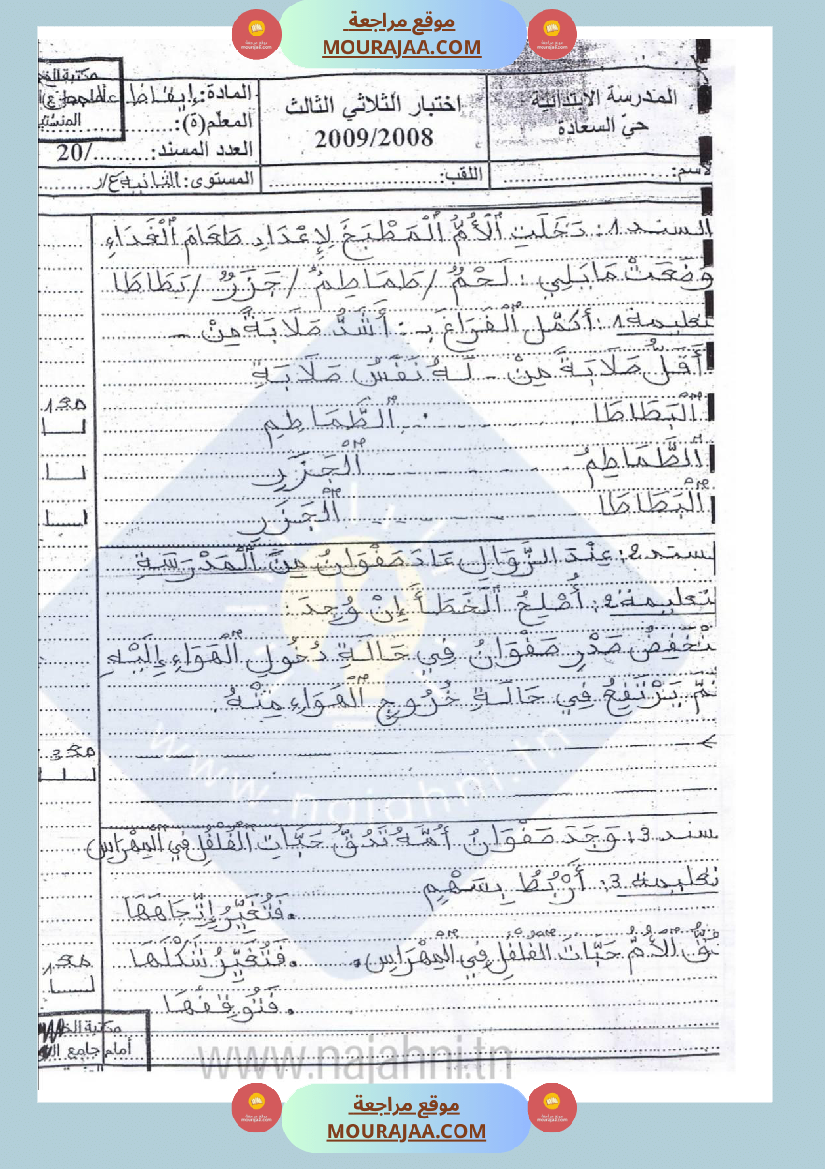 موقع مراجعة
MOURAJAA.COM
المدرسة الابتدائية
حيّ السعادة
اختبار الثلاثي الثالث
2009/2008
المادة: إيقاظ علمي
المعلّم(ة):
العدد المسند: ......../20
مكتبة
الاسم: ........ اللقب: ........ المستوى: الثانية
السند 1: دَخَلَتِ الْأُمُّ الْمَطْبَخَ لِإِعْدَادِ طَعَامِ الْغَدَاءِ
وَضَعَتْ مَا يَلِي: لَحْمٌ / طَمَاطِمُ / جَزَرٌ / بَطَاطَا
تعليمة 1: أُكَمِّلُ الْفَرَاغَ بـ: أَشَدُّ صَلَابَةً مِنْ -
أَقَلُّ صَلَابَةً مِنْ - لَهُ نَفْسُ صَلَابَةِ
الْبَطَاطَا ........ الطَّمَاطِمِ
الطَّمَاطِمُ ........ الْجَزَرِ
الْبَطَاطَا ........ الْجَزَرِ
مع1
سند 2: عِنْدَ الزَّوَالِ عَادَ صَفْوَانُ مِنَ الْمَدْرَسَةِ
تعليمة 2: أُصْلِحُ الْخَطَأَ إِنْ وُجِدَ:
يَنْخَفِضُ صَدْرُ صَفْوَانَ فِي حَالَةِ دُخُولِ الْهَوَاءِ إِلَيْهِ
ثُمَّ يَرْتَفِعُ فِي حَالَةِ خُرُوجِ الْهَوَاءِ مِنْهُ.
مع3
سند 3: وَجَدَ صَفْوَانُ أُمَّهُ تَدُقُّ حَبَّاتِ الْفُلْفُلِ فِي الْمِهْرَاسِ
تعليمة 3: أَرْبُطُ بِسَهْمٍ
. فَتُغَيِّرُ اِتِّجَاهَهَا
تَدُقُّ الْأُمُّ حَبَّاتَ الْفُلْفُلِ فِي الْمِهْرَاسِ. . فَتُغَيِّرُ شَكْلَهَا
. فَتُوقِفُهَا
مع1
مكتبة
أمام جامع
www.najahni.tn
www.najahni.tn
موقع مراجعة
MOURAJAA.COM